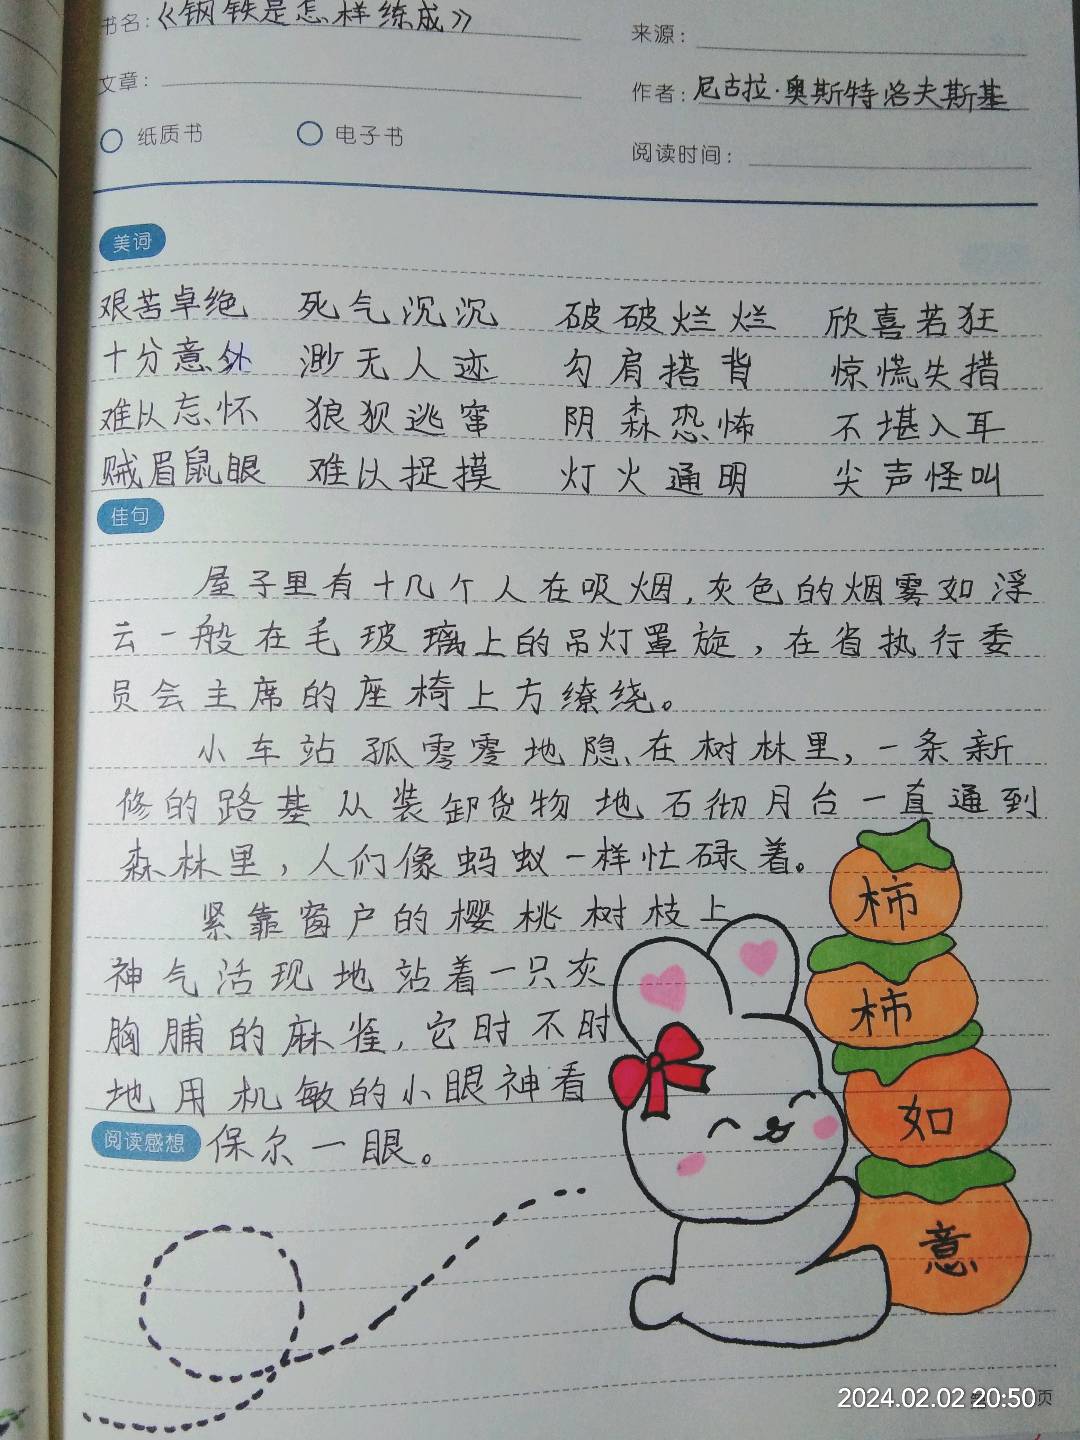 书名：《钢铁是怎样练成》
来源：
文章：
作者：尼古拉·奥斯特洛夫斯基
纸质书 电子书
阅读时间：
美词
艰苦卓绝 死气沉沉 破破烂烂 欣喜若狂
十分意外 渺无人迹 勾肩搭背 惊慌失措
难以忘怀 狼狈逃窜 阴森恐怖 不堪入耳
贼眉鼠眼 难以捉摸 灯火通明 尖声怪叫
佳句
屋子里有十几个人在吸烟，灰色的烟雾如浮
云一般在毛玻璃上的吊灯罩旋，在省执行委
员会主席的座椅上方缭绕。
小车站孤零零地隐在树林里，一条新
修的路基从装卸货物地石彻月台一直通到
森林里，人们像蚂蚁一样忙碌着。
紧靠窗户的樱桃树枝上
神气活现地站着一只灰
胸脯的麻雀，它时不时
地用机敏的小眼神看
阅读感想 保尔一眼。
柿
柿
如
意
页
2024.02.02 20:50